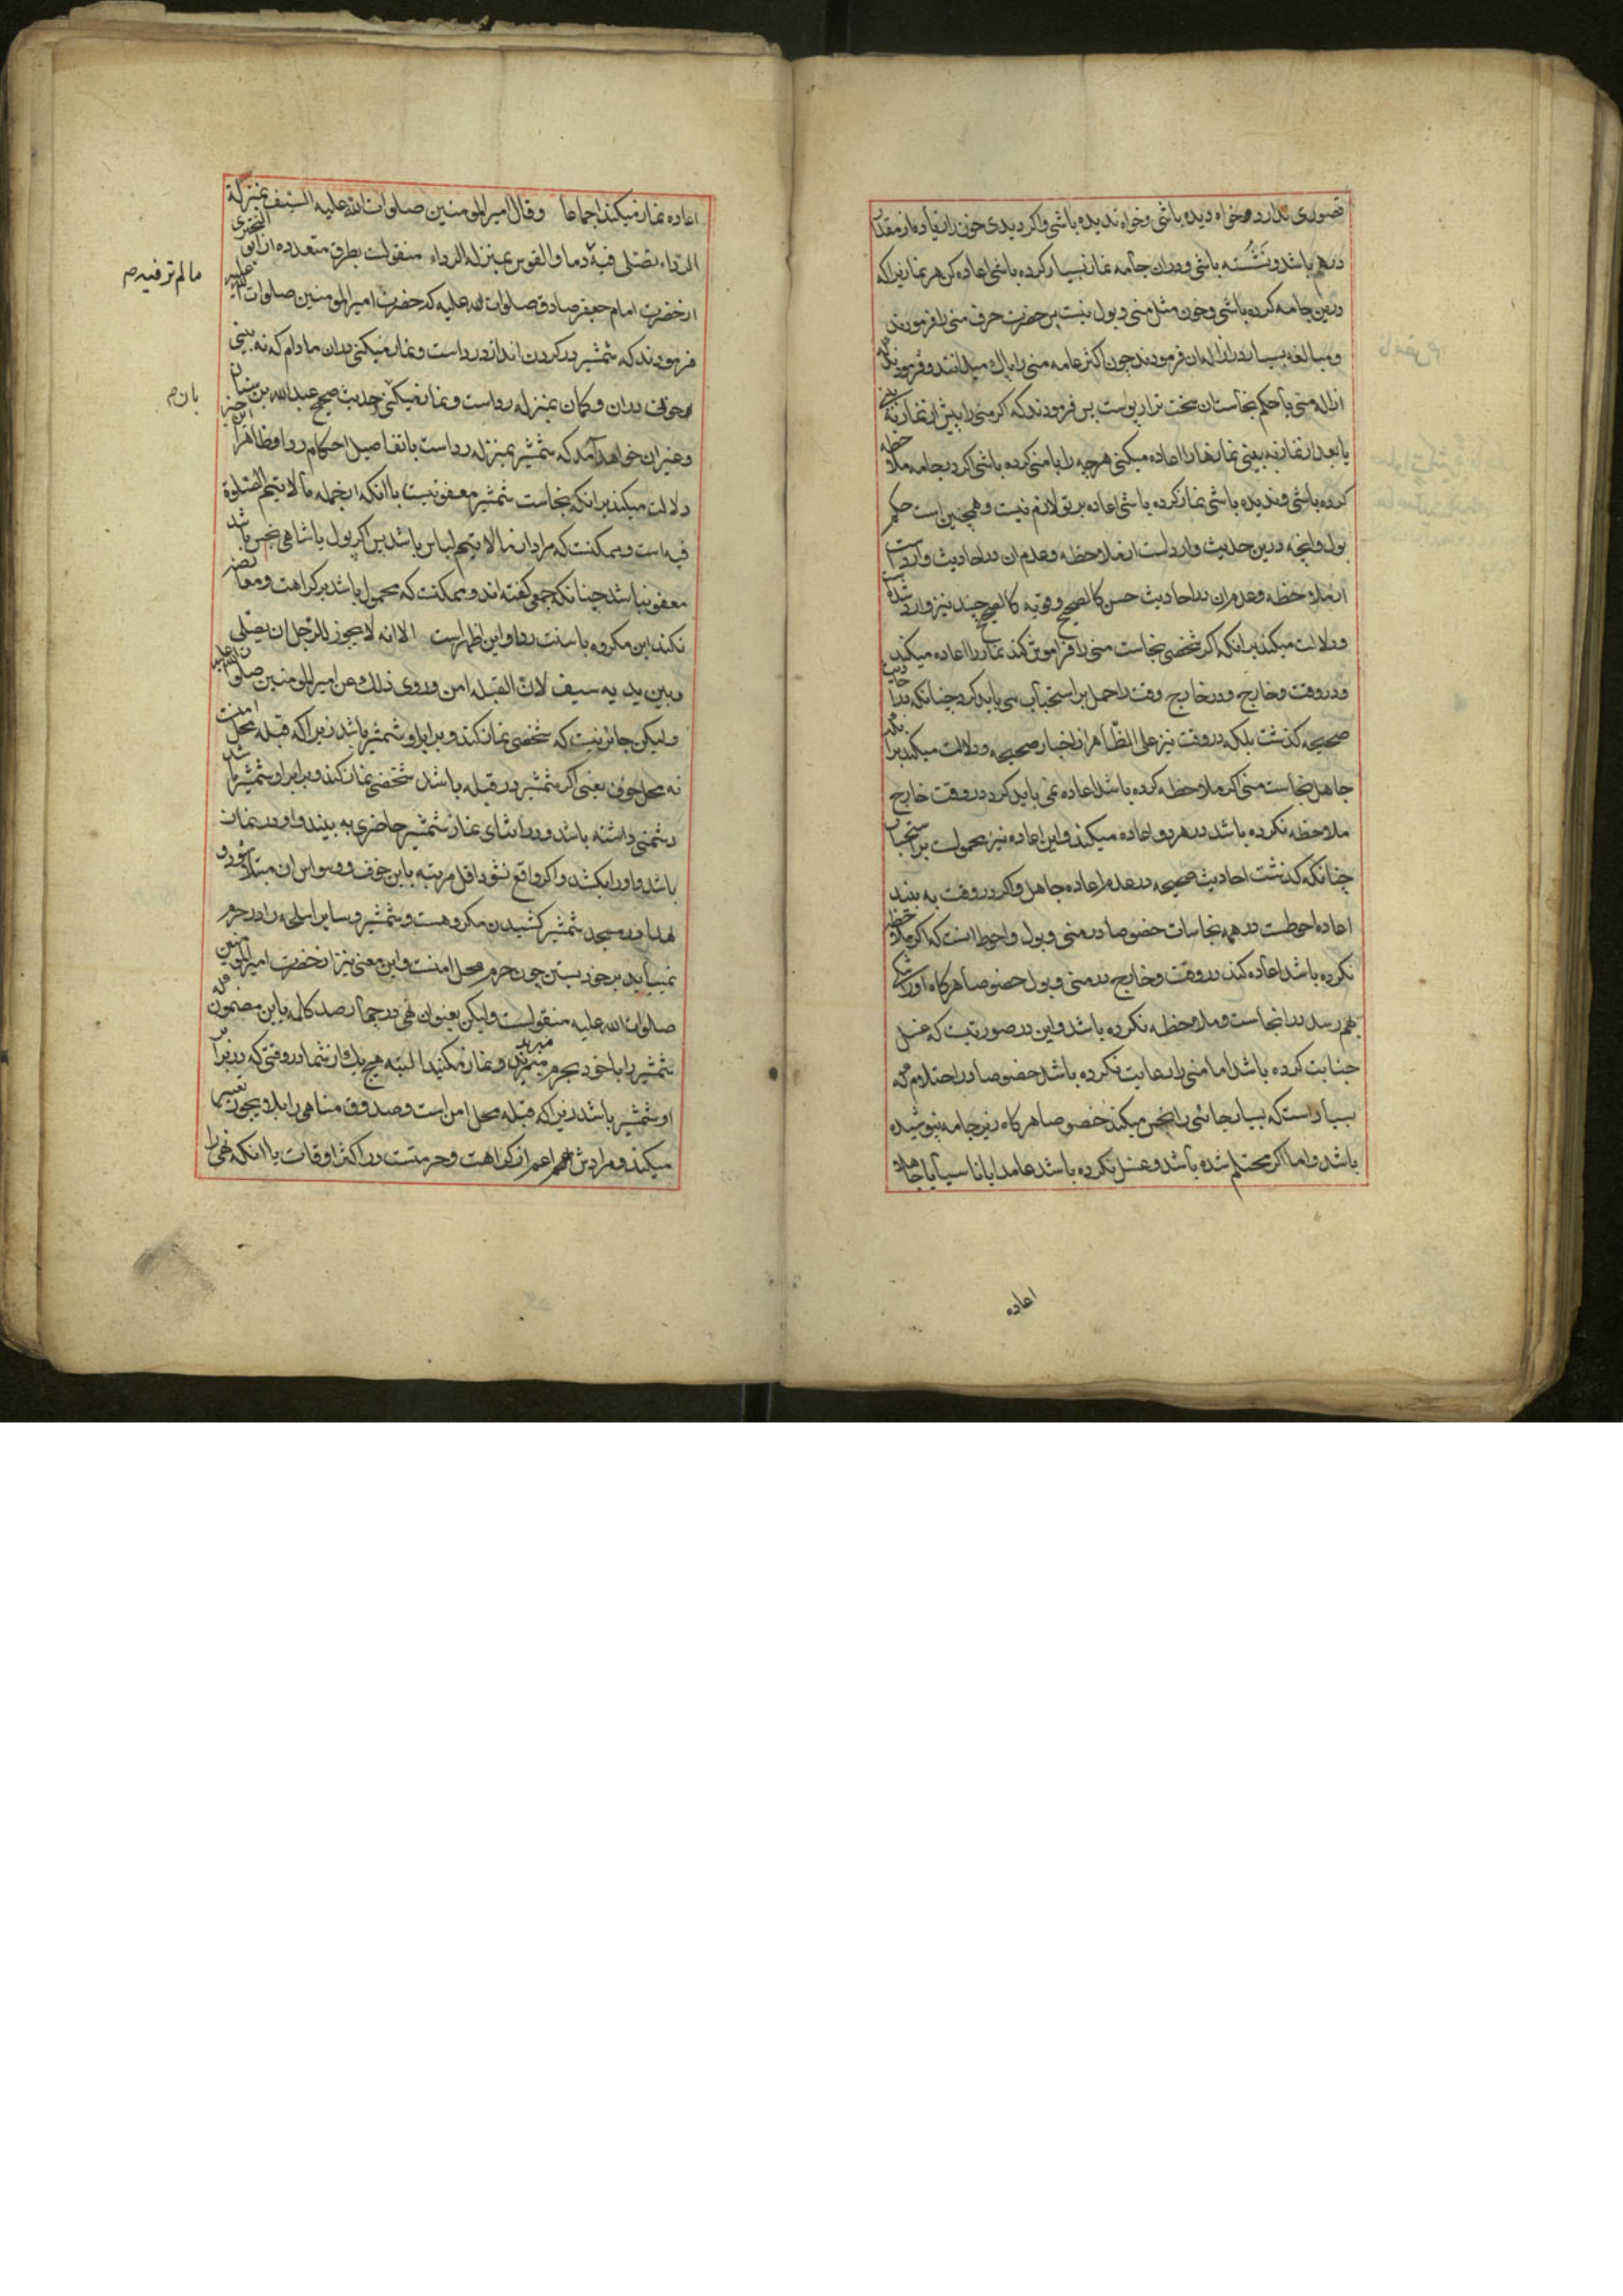 قصوری ندارد خواه دیده باشی و خواه ندیده باشی و اگر دیدی خون را زیاده از مقدار
درهم باشد و نشسته باشی و در ان جامه نماز بسیار کرده باشی اعاده کن هر نماز یرا که
درین جامه کرده باشی و خون مثل منی و بول نیست پس حضرت حرف منی را فرمودند
و مبالغه بسیار در ازاله ان فرمودند چون اکثر عامه منی را پاک میدانند و فرمودند که
ازاله منی یا حکم نجاست ان سخت تر از بولست پس فرمودند که اگر منی را پیش از نماز به بینی
یا بعد از نماز به بینی نمازها را اعاده میکنی هر چه را با منی کرده باشی اگر در جامه ملاحظه
کرده باشی و ندیده باشی نماز کرده باشی اعاده بر تو لازم نیست و همچنین است حکم
بول و انچه درین حدیث وارد است از ملاحظه و عدم ان در احادیث وارد است
از ملاحظه و عدم ان در احادیث حسن کالصحیح و قویه کالصحیح چند نیز وارد شده است
و دلالت میکند بر انکه اگر شخصی نجاست منی را فراموش کند نماز را اعاده میکند
در وقت و خارج و در خارج وقت را حمل بر استحباب می باید کرد چنانکه در احادیث
صحیحه کذشت بلکه در وقت نیز علی الظاهر از اخبار صحیحه و دلالت میکند بر انکه
جاهل نجاست منی اگر ملاحظه کرده باشد اعاده نمی باید کرد در وقت خارج
ملاحظه نکرده باشد در هر دو اعاده میکند و این اعاده نیز محمولست بر استحباب
چنانکه کذشت احادیث صحیحه در عدم اعاده جاهل و اگر در وقت به بیند
اعاده احوطست در همه نجاسات خصوصا در منی و بول و احوط انست که اگر ملاحظه
نکرده باشد اعاده کند در وقت و خارج در منی و بول خصوصا هر گاه او را شکی
بهم رسد در نجاست و ملاحظه نکرده باشد و این در صورتیست که غسل
جنابت کرده باشد اما منی را رعایت نکرده باشد خصوصا در احتلام که
بسیار است که بسیار جائی را نجس میکند خصوصا هر گاه زیر جامه نپوشیده
باشد و اما اگر محتلم شده باشد و غسل نکرده باشد عامدا یا ناسیا یا جاهلا
اعاده
اعاده نماز میکند اجماعا وقال امیر المومنین صلوات الله علیه السیف بمنزلة
الرداء تصلی فیه دما والقوس بمنزلة الرداء منقولست بطرق متعدده از ابو البختری
مالم ترفیه
از حضرت امام جعفر صادق صلوات الله علیه که حضرت امیر المومنین صلوات الله علیه
فرمودند که شمشیر در کردن انداز در رداست و نماز میکنی در ان مادام که نه بینی
خونی در ان و کمان بمنزله رداست و نماز میکنی حدیث صحیح عبد الله بن سنان
بان
و غیر ان خواهد آمد که شمشیر بمنزله رداست با تفاصیل احکام ردا و ظاهرا
دلالت میکند بر انکه نجاست شمشیر معفو نیست با انکه از جمله ما لا یتم الصلوة
فیه است و ممکنست که مراد از ما لا یتم لباس باشد پس اگر پول یا شاهی نجس باشد
معفو نباشد چنانکه جمعی کفته اند و ممکنست که محمول باشد بر کراهت
نکند این مکروه با سنت ردا و این اظهر است الا انه لا یجوز للرجل ان یصلی
وبین یدیه سیف لان القبلة امن وروی ذلک عن امیر المومنین صلوات الله علیه
ولیکن جائز نیست که شخصی نماز کند و برابر او شمشیر باشد زیرا که قبله محل امنست
نه محل خوف یعنی اگر شمشیر در قبله باشد شخصی نماز کند و برابر او شمشیر باشد
دشمنی داشته باشد و در اثنای نماز شمشیر حاضری به بیند و او در نماز
باشد و او را بکشد و اگر واقع نشود اقل مرتبه باین خوف و وسواس ان مبتلا شود
لهذا در مسجد شمشیر کشیدن مکروهست و شمشیر و سایر اسلحه را در حرم
نمیباید بر خود بستن چون حرم محل امنست و این معنی نیز از حضرت امیر المومنین
صلوات الله علیه منقولست ولیکن بعنوان نهی در چهار صد کلمه باین مضمون که
شمشیر را با خود بحرم مبرید و نماز مکنید البته هیچ یک از شما در وقتی که در برابر
او شمشیر باشد زیرا که قبله محل امن است و صدوق مناهی را بلا یجوز تعبیر
میکند و مرادش اعم از کراهت و حرمتست در اکثر اوقات با انکه نهی را